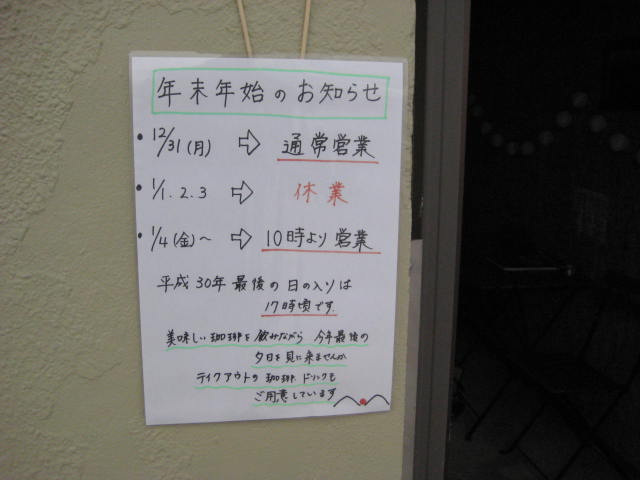 年末年始のお知らせ
・12/31(月) ⇨ 通常営業
・1/1.2.3 ⇨ 休業
・1/4(金)〜 ⇨ 10時より営業
平成30年最後の日の入りは
17時頃です.
美味しい珈琲を飲みながら 今年最後の
夕日を見に来ませんか
テイクアウトの珈琲.ドリンクも
ご用意しています